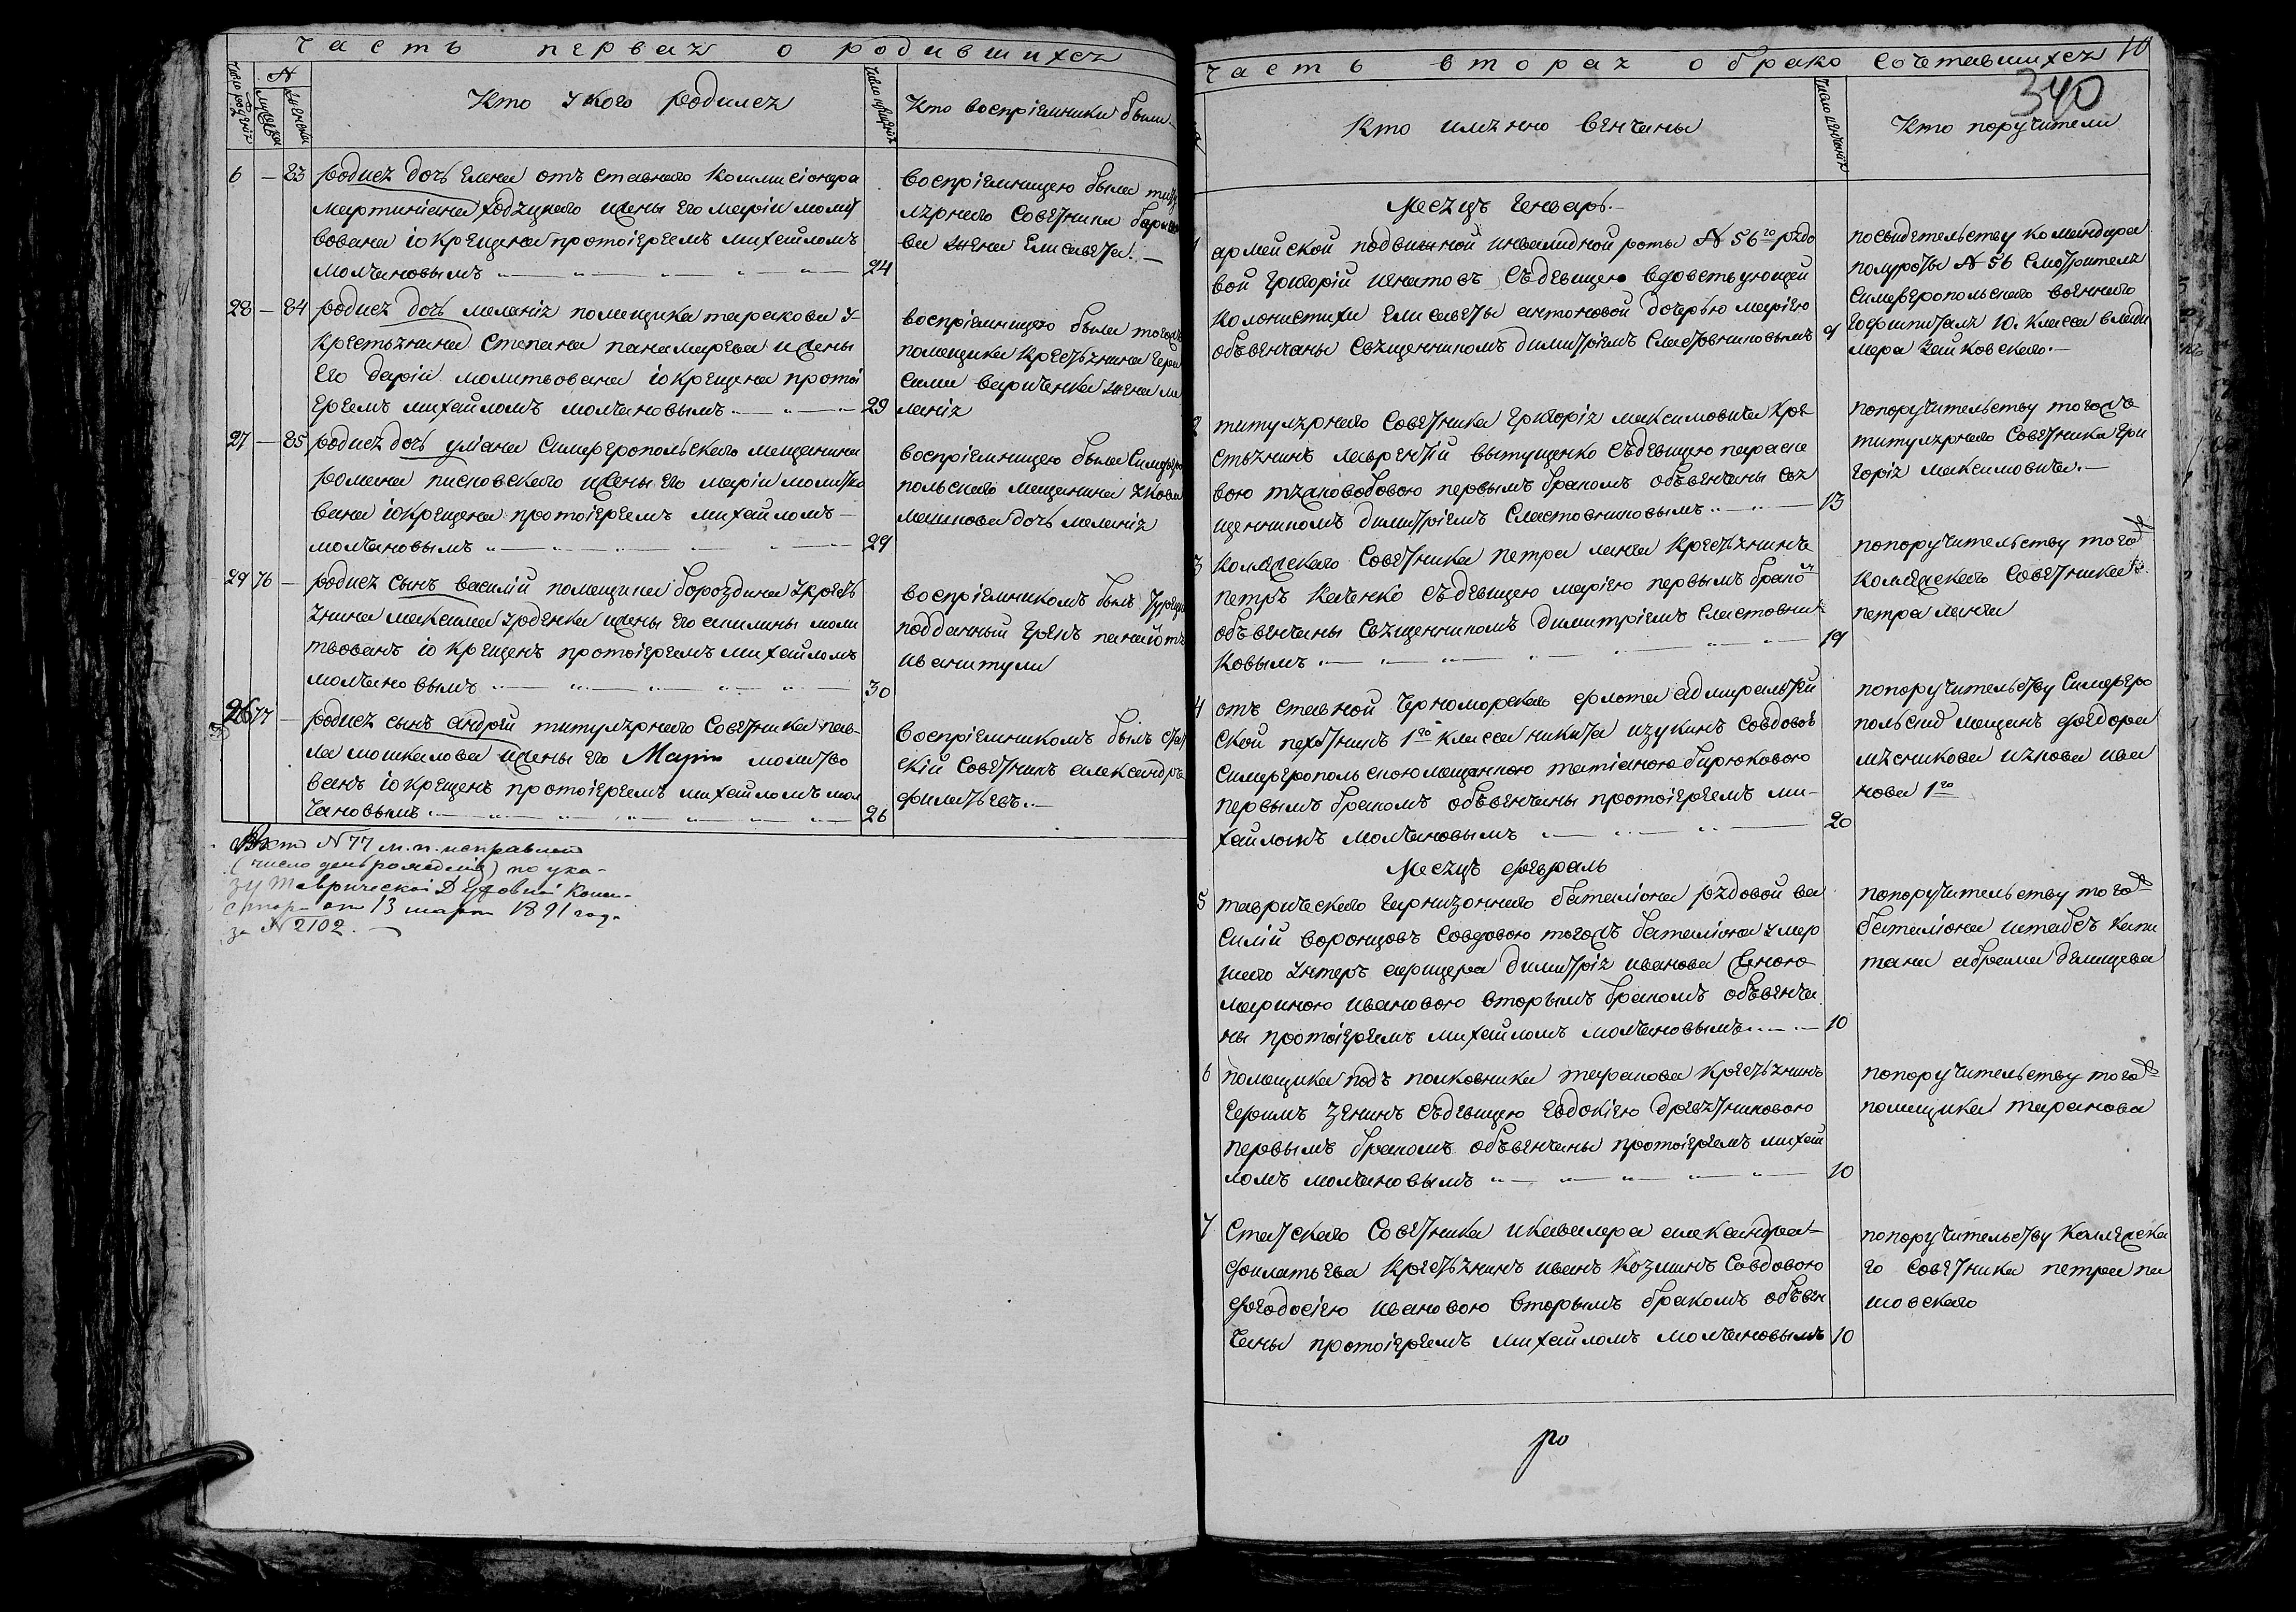 часть первая о родившихся
№
Кто у кого родился
Кто воспріемники были
6 — 83 родись дочь Елена отъ ставного коммисіонера
Мартиніана жены его маріи молит
вована і окрещена протоіереемъ михайломъ
молчановымъ 24
воспріемницею была титу
лярного советника
ва жена елисавета. —
28 — 84 родись дочь меланія помещика таракова у
крестьянина степана панамарева и жены
его даріи молитвована і окрещена протоі
ереемъ михайломъ молчановымъ 29
воспріемницею была тогожъ
помещика крестьянина гера
сима жена ме
ланія
27 — 85 родись дочь уліана симферопольского мещанина
романа писковского жены его маріи молитво
вана і окрещена протоіереемъ михайломъ
молчановымъ 29
воспріемницею была симферо
польского мещанина якова
машкова дочь меланія
29 76 — родись сынъ василій помещика бороздина у кресть
янина жены его акилины моли
твованъ і окрещенъ протоіереемъ михайломъ
молчановымъ 30
воспріемникомъ былъ турецко
подданный грекъ панаіотъ
26 77 — родись сынъ андрей титулярного советника пав
ла машкалова жены его Маріи молитво
ванъ і окрещенъ протоіереемъ михайломъ мол
чановымъ 26
воспріемникомъ былъ стат
скій советникъ александръ
филатьевъ. —
№ 77 м. п. исправленъ
(число день рожденія) по ука-
зу Таврической Духовной Конси-
стор. от 13 марта 1891 года
за № 2102. —
часть вторая о бракосочетавшихся 10
340
Кто имянно венчаны
Кто поручители
месяцъ генварь. —
1 армейской подвижной инвалидной роты № 56го рядо
вой григорій игнатовъ съ девицею вдовствующей
колонистихи елисаветы антоновой дочерью маріею
объвенчаны священникомъ димитріемъ сластовниковымъ 9
по свидетельству командира
полуроты № 56 смотрителя
симферопольского военного
гофшпиталя 10. класса влади
мера —
2 титулярного советника григорія максимовича кре
стьянинъ лаврентій съ девицею параске
вою первымъ бракомъ объвенчаны свя
щенникомъ димитріемъ сластовниковымъ 13
по поручительству тогожъ
титулярного советника гри
горія максимовича. —
3 коллежского советника петра ланга крестьянинъ
петръ каченко съ девицею маріею первымъ брако
объвенчаны священникомъ димитріемъ сластовни
ковымъ 19
по поручительству того
коллежского советника
петра ланга
4 отъ ставной черноморского флота адмиралтей
ской пехотникъ 1го класса никита изукинъ со вдовою
симферопольскою мещанкою татіаною бирюковою
первымъ бракомъ объвенчаны протоіереемъ ми-
хайломъ молчановымъ 20
по поручительству симферо
польскид мещанъ федора
мясникова и якова ива
нова 1го
месяцъ февраль
5 таврического гарнизонного баталіона рядовой ва
силій воронцовъ со вдовою тогожъ баталіона умер
шаго унтеръ афицера димитрія иванова женою
мариною ивановою вторымъ бракомъ объвенча
ны протоіереемъ михайломъ молчановымъ 10
по поручительству того
баталіона штабсъ капи
тана абрама
6 помещика подъ полковника таранова крестьянинъ
ефимъ зенинъ съ девицею евдокіею
первымъ бракомъ объвенчаны протоіереемъ михай
ломъ молчановымъ 10
по поручительству того
помещика таранова
7 статского советника и кавалера александра
филатьева крестьянинъ иванъ козминъ со вдовою
феодосіею ивановою вторымъ бракомъ объвен
чаны протоіереемъ михайломъ молчановымъ 10
по поручительству коллежска
го советника петра па
шовского
ро